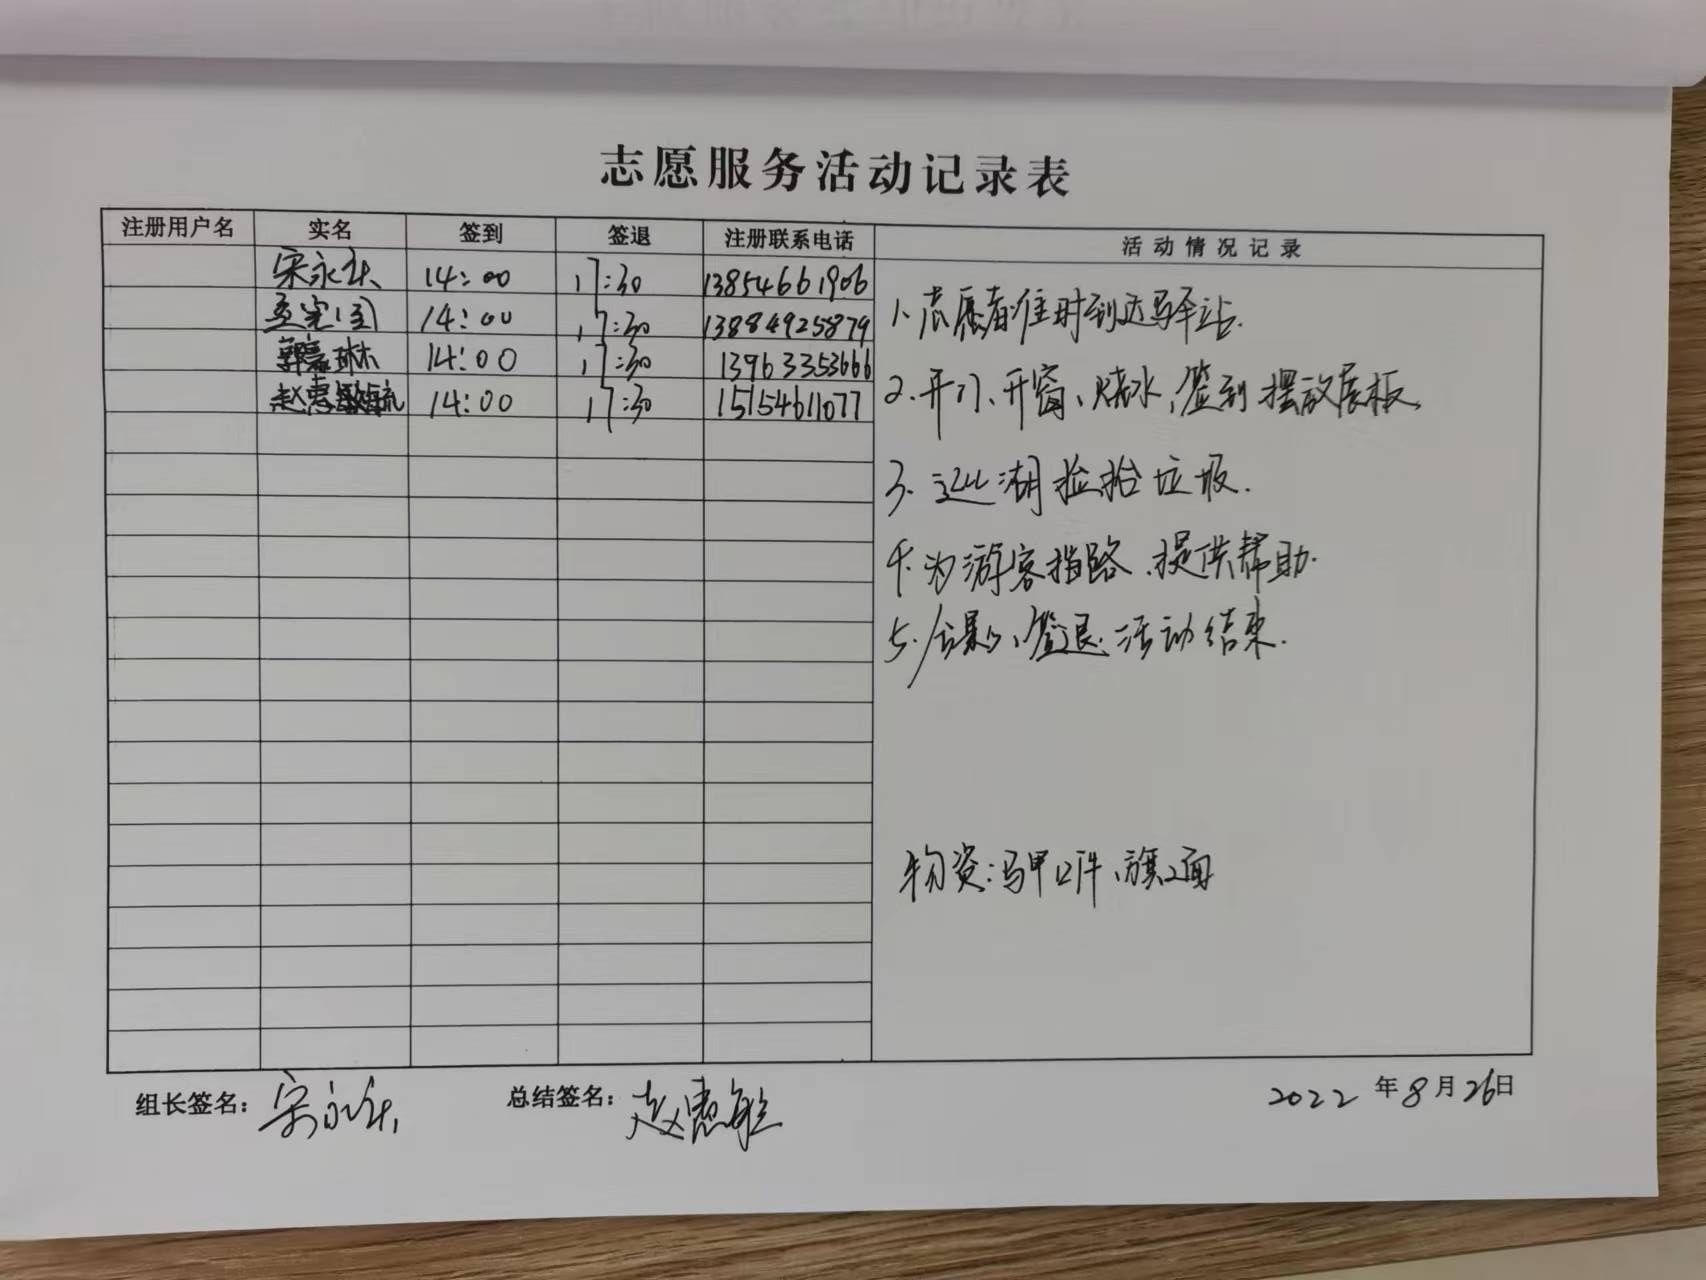 志愿服务活动记录表
注册用户名 实名 签到 签退 注册联系电话 活动情况记录
宋永 14:00 17:30 13854661906
14:00 17:30 13884925879
郭 琳 14:00 17:30 13963353666
赵惠 14:00 17:30 15154611077
1. 志愿者准时到达驿站.
2. 开门、开窗、烧水,签到 摆放展板.
3. 巡湖捡拾垃圾.
4. 为游客指路、提供帮助.
5. 合影、签退.活动结束.
物资:马甲12件、旗2面
组长签名: 宋永 总结签名: 赵惠敏 2022年8月26日